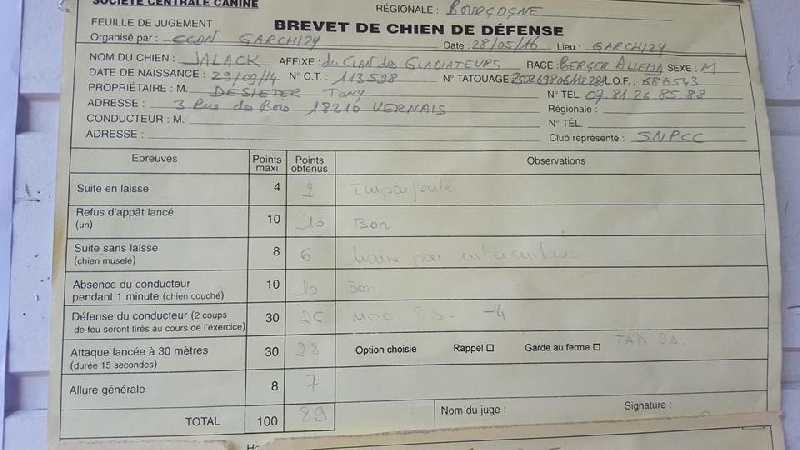 SOCIÉTÉ CENTRALE CANINE
RÉGIONALE : BOURGOGNE
FEUILLE DE JUGEMENT
BREVET DE CHIEN DE DÉFENSE
Organisé par : GARCHIZY Date 28/05/16 Lieu : GARCHIZY
NOM DU CHIEN : JALACK AFFIXE : du Clan des GLADIATEURS RACE : BERGER ALLEMA SEXE : M
DATE DE NAISSANCE : 29/09/14 N° C.T. : 113598 N° TATOUAGE L.O.F. :
PROPRIÉTAIRE : M. DESIETER Tony N° TEL 07 81 26 85 88
ADRESSE : 3 Rue des Bois 18210 VERNAIS Régionale :
CONDUCTEUR : M. N° TÉL.
ADRESSE : Club représenté : SNPCC
Epreuves Points maxi Points obtenus Observations
Suite en laisse 4 2 Imparfaite
Refus d'appât lancé (un) 10 10 Bon
Suite sans laisse (chien muselé) 8 6
Absence du conducteur pendant 1 minute (chien couché) 10 10 Bon
Défense du conducteur (2 coups de feu seront tirés au cours de l'exercice) 30 26 -4
Attaque lancée à 30 mètres (durée 15 secondes) 30 28 Option choisie Rappel ☐ Garde au ferme ☐
Allure générale 8 7
TOTAL 100 89 Nom du juge : Signature :